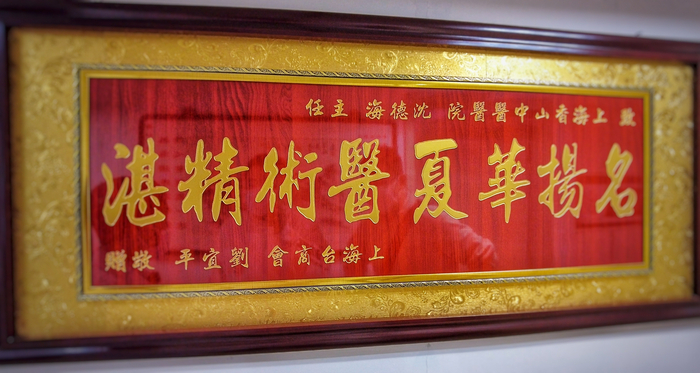 致 上海香山中醫醫院 沈德海 主任
名揚華夏醫術精湛
上海台商會 劉宜平 敬贈